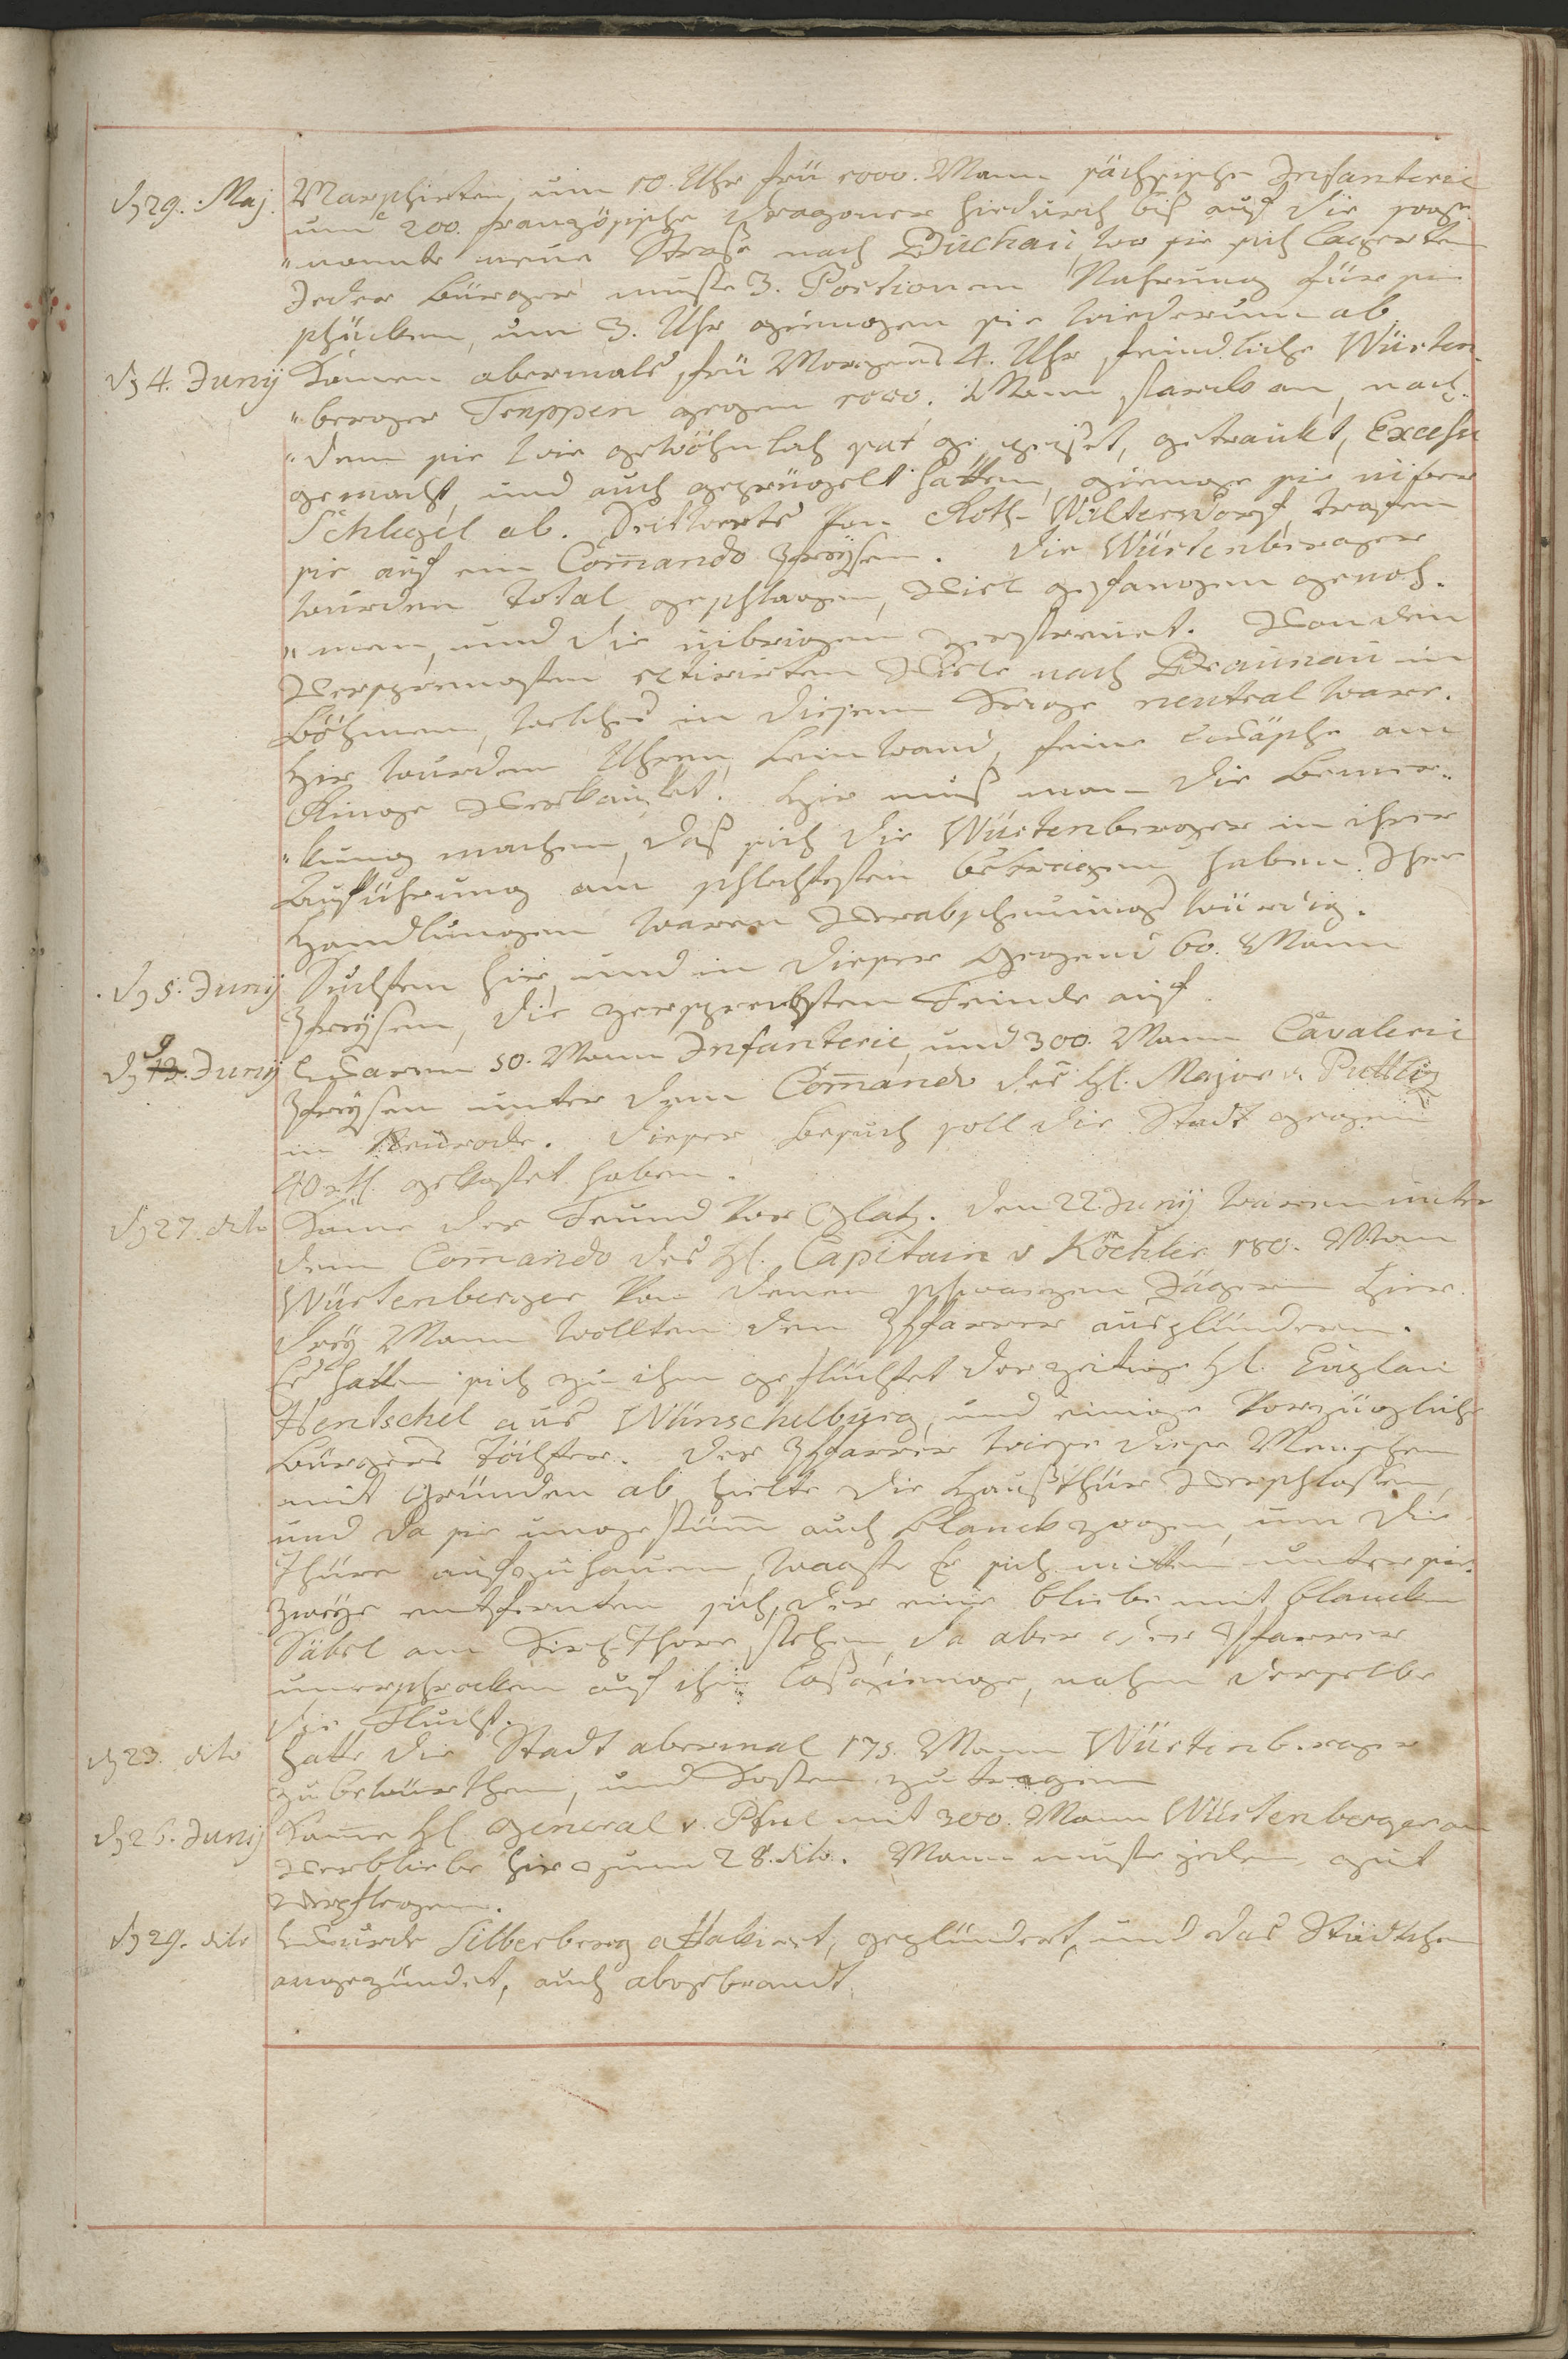 d 29. Maj. Marschirten um 10. Uhr frü 1000. Mann sächsische Infanterie
und 200. französische Dragoner hiedurch biß auf die soge-
"nannte neue Straße nach Buchau, wo sie sich lagerten
Jeder Bürger muste 3. Portionen Nahrung für sie
schicken, um 3. Uhr giengen sie wiederum ab.
d 4. Junÿ Kamen abermals frü Morgens 4. Uhr feindliche Würten-
"berger Truppen gegen 1000. Mann starck an, nach-
"dem sie wie gewöhnlich sat gespeißet, getrankt, Excesse
gemacht und auch geprügelt hatten, gienge sie über
Schlegel ab. Seitwerts von Roth-Waltersdorf trafen
sie auf ein Comando Preÿsen. Die Würtenberger
wurden total geschlagen, Viel gefangen genoh-
"men, und die übrigen zerstreuet. Von den
Versprengten retirirten Viele nach Braunau in
Böhmen, welches in diesem Kriege neutral ware.
Hir wurden Uhren, Leinwand, feine Wäsche am
Ringe Verkaufet. Hir muß man die Bemer-
"kung machen, daß sich die Würtenberger in ihrer
Aufführung am schlechtesten betragen haben. Ihre
Handlungen waren Verabscheuungs würdig.
d 5. Junÿ Suchten hir und in dieser Gegend 60. Mann
Preÿsen, die zersprengten Feinde auf.
d 9 13. Junÿ Waren 50. Mann Infanterie und 300. Mann Cavalerie
Preÿsen unter dem Comando des H. Major v. Puttlitz
in Neurode. Dieser Besuch soll die Stadt gegen
40 rth. gekostet haben.
d 27. dito Kame der Feund vor Glatz. Den 22 Junÿ waren unter
dem Comando des H. Capitain v Köchler 180. Man
Würtenberger von denen schwarzen Jägern Hier.
Dreÿ Mann wollten den Pfarrer ausplündern.
Es hatten sich zu ihm geflüchtet der zeitige H. Caplan
Hentschel aus Wünschelburg, und einige vorzügliche
Bürgers Töchter. Der Pfarrer wiese diese Menschen
mit Gründen ab, hielte die Haußthür Verschlossen,
und da sie ungestümm auch blanck zogen, um die
Thüre aufzuhauen, wagte Er sich mitten unter sie.
Zweÿe entfernten sich, der eine bliebe mit blancken
Säbel am Kirch-Thore stehen, da aber der Pfarrer
unerschrocken auf ihn loßgienge, nahm derselbe
die Flucht.
d 23. dito hatte die Stadt abermal 175. Mann Würtenberger
zu bewürthen, und Kosten zu tragen
d 26. Junÿ Kame H. General v. Pful mit 300. Mann Würtenberger an
Verbliebe hir zum 28. dito. Mann muste jeden gut
Verpflegen.
d 29. dito Wurde Silberberg attakiret, geplündert, und das Städtchen
angezündet, auch abgebrandt.